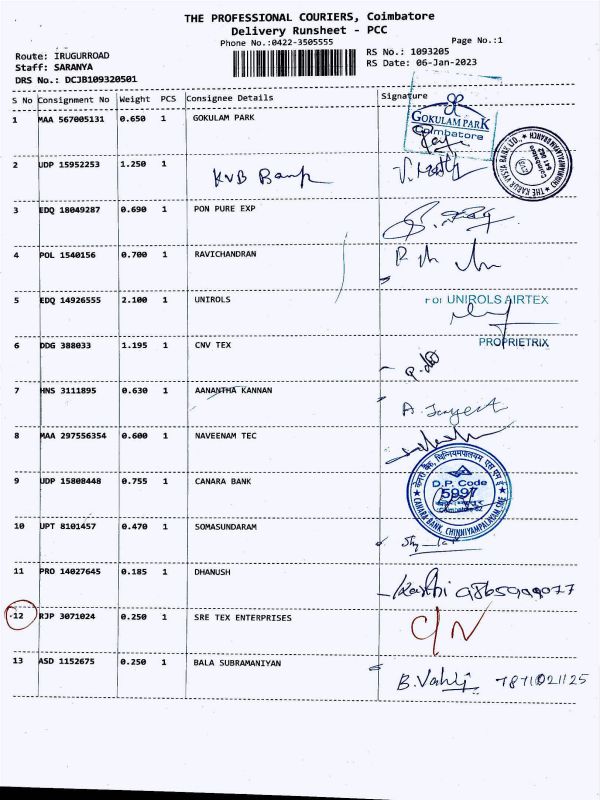 THE PROFESSIONAL COURIERS, Coimbatore
Delivery Runsheet - PCC
Phone No.:0422-3505555 Page No.:1
Route: IRUGURROAD RS No.: 1093205
Staff: SARANYA RS Date: 06-Jan-2023
DRS No.: DCJB109320501
S No Consignment No Weight PCS Consignee Details Signature
1 MAA 567005131 0.650 1 GOKULAM PARK
GOKULAM PARK
Coimbatore
2 UDP 15952253 1.250 1 KVB Bank
THE KARUR VYSYA BANK LTD.,
3 EDQ 18049287 0.690 1 PON PURE EXP
4 POL 1540156 0.700 1 RAVICHANDRAN
5 EDQ 14926555 2.100 1 UNIROLS
For UNIROLS AIRTEX
PROPRIETRIX
6 DDG 388033 1.195 1 CNV TEX
7 HNS 3111895 0.630 1 AANANTHA KANNAN
8 MAA 297556354 0.600 1 NAVEENAM TEC
9 UDP 15808448 0.755 1 CANARA BANK
D.P. Code
5997
CANARA BANK, CHINNIYAMPALAYAM
10 UPT 8101457 0.470 1 SOMASUNDARAM
11 PRO 14027645 0.185 1 DHANUSH
12 RJP 3071024 0.250 1 SRE TEX ENTERPRISES C/N
13 ASD 1152675 0.250 1 BALA SUBRAMANIYAN